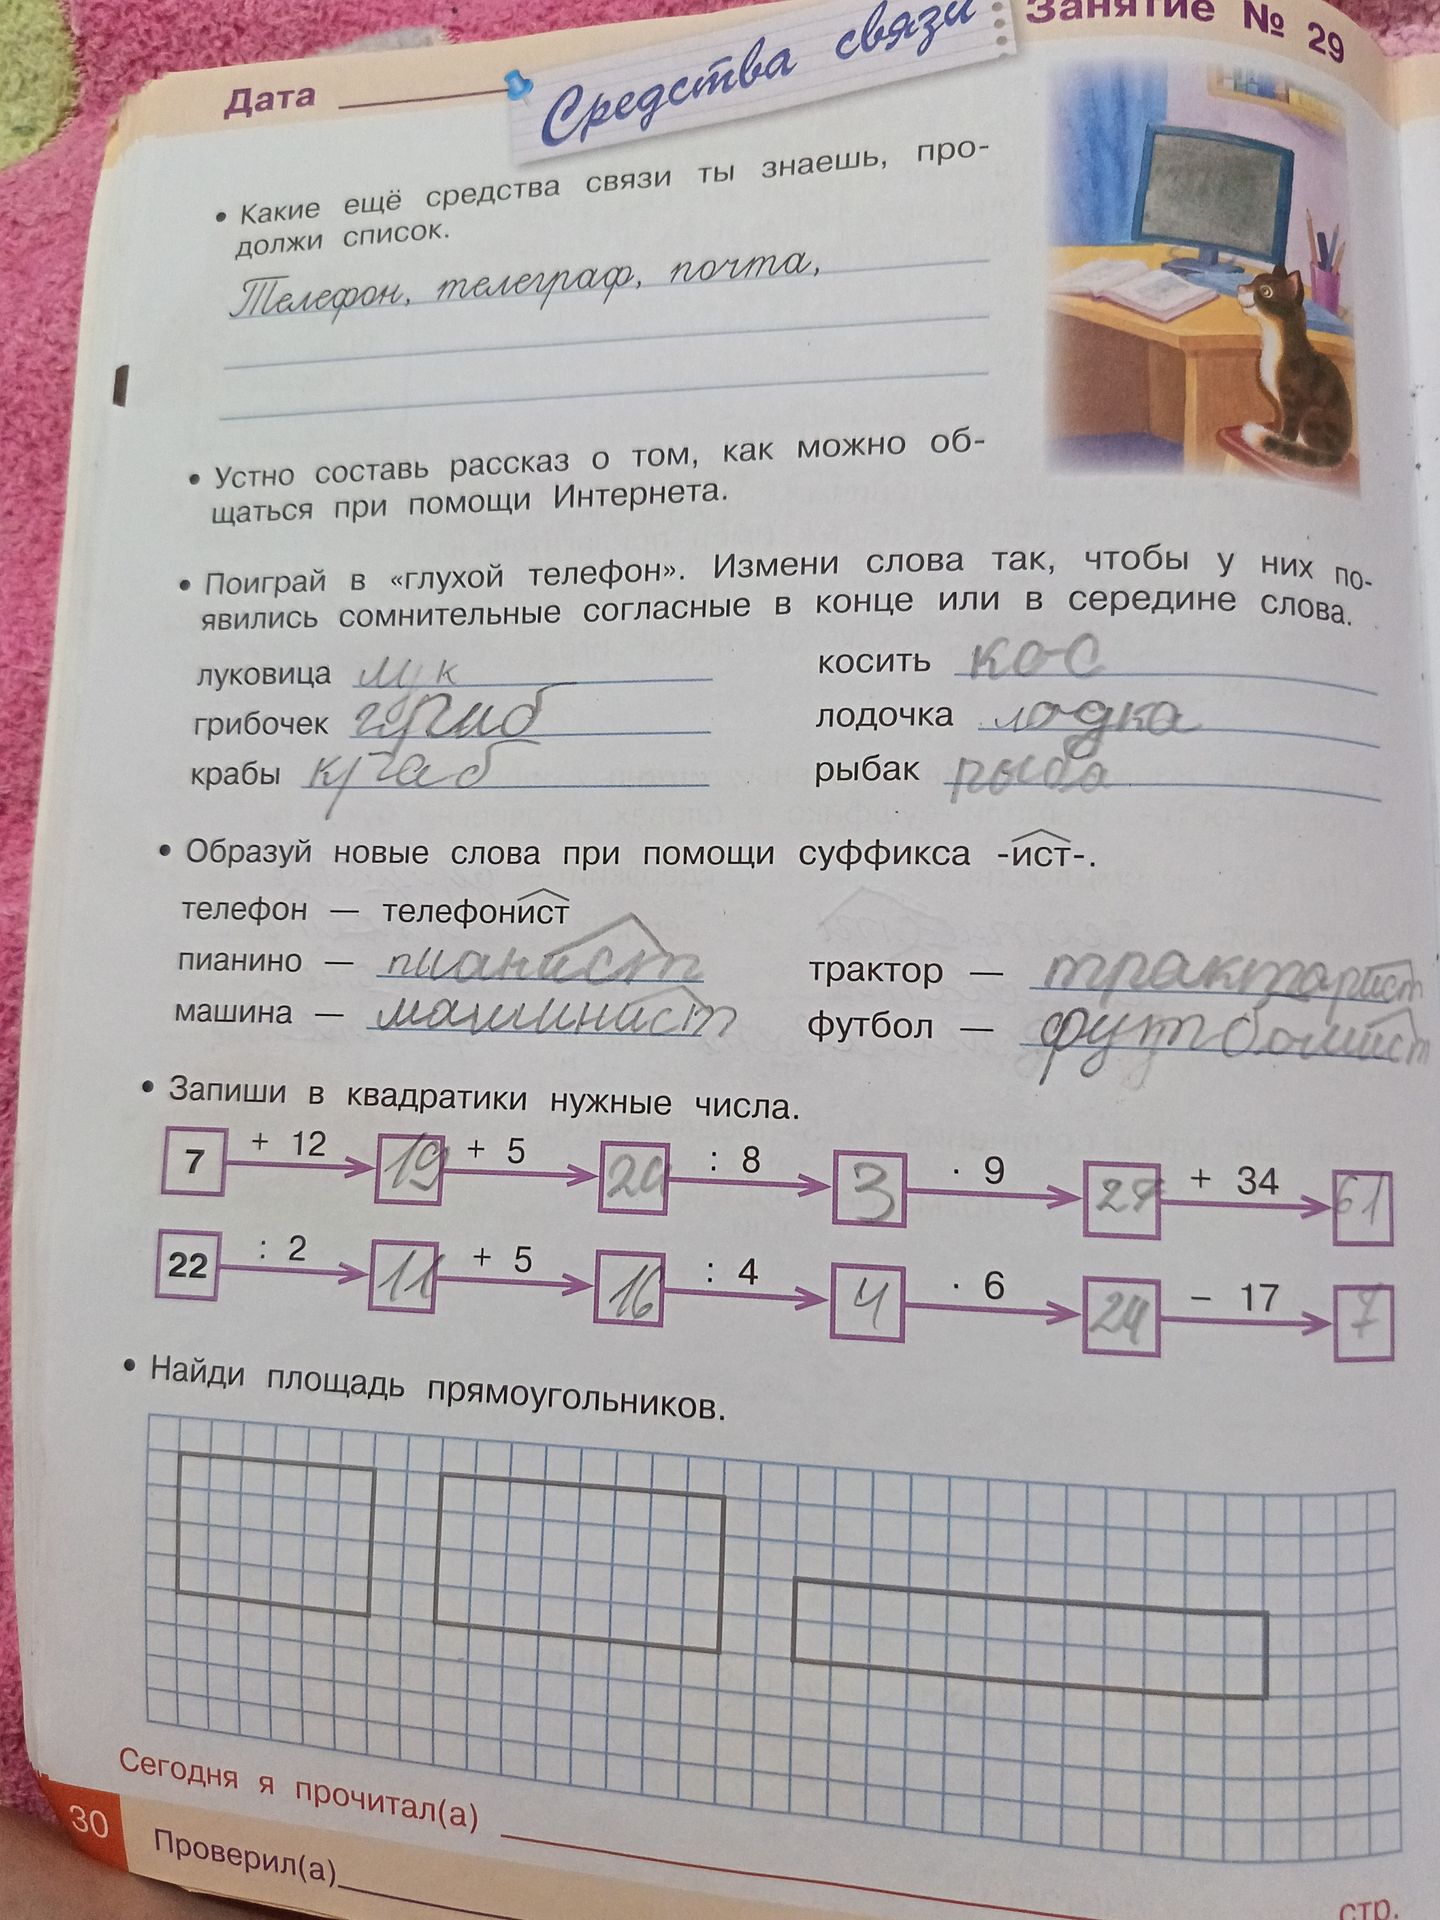 Занятие № 29
Дата
Средства связи
• Какие ещё средства связи ты знаешь, про-
должи список.
Телефон, телеграф, почта,
• Устно составь рассказ о том, как можно об-
щаться при помощи Интернета.
• Поиграй в «глухой телефон». Измени слова так, чтобы у них по-
явились сомнительные согласные в конце или в середине слова.
луковица лук косить кос
грибочек гриб лодочка лодка
крабы краб рыбак рыба
• Образуй новые слова при помощи суффикса -ист-.
телефон — телефонист
пианино — пианист трактор — трактарист
машина — машинист футбол — футболист
• Запиши в квадратики нужные числа.
7 + 12 19 + 5 24 : 8 3 · 9 27 + 34 61
22 : 2 11 + 5 16 : 4 4 · 6 24 − 17 7
• Найди площадь прямоугольников.
Сегодня я прочитал(а)
стр.
30 Проверил(а)